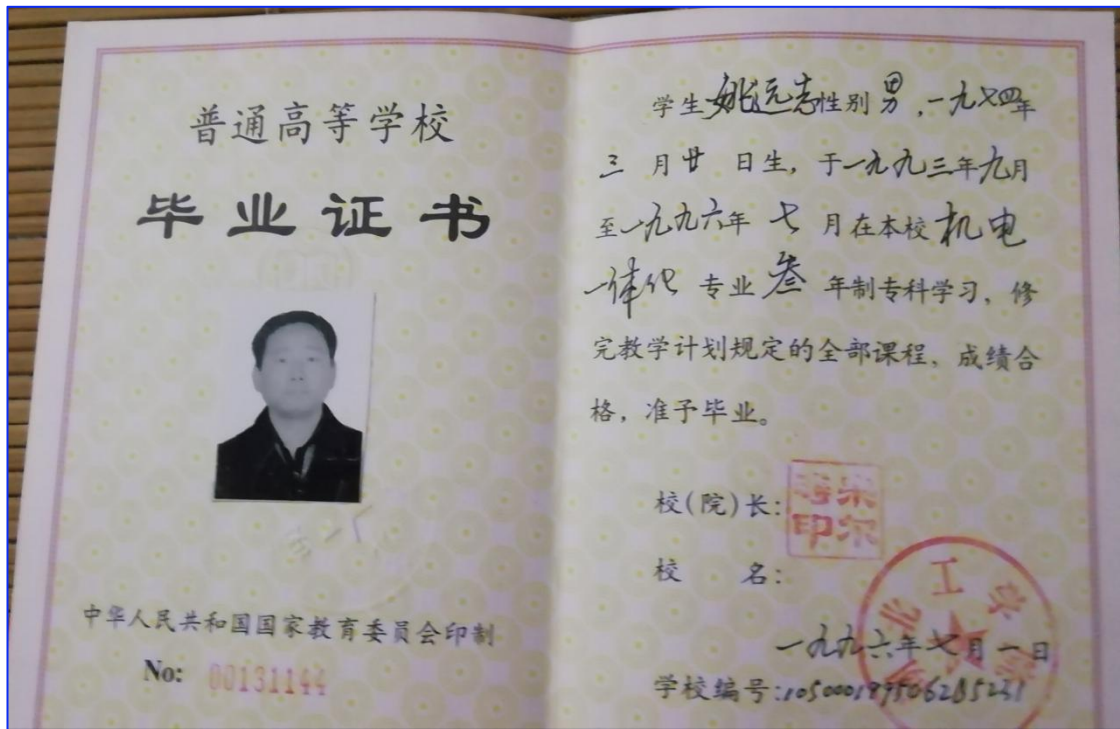 普通高等学校
毕业证书
中华人民共和国国家教育委员会印制
No: 00131144
学生姚远志性别男，一九七四年
三月廿日生，于一九九三年九月
至一九九六年七月在本校机电
一体化专业叁年制专科学习，修
完教学计划规定的全部课程，成绩合
格，准予毕业。
校(院)长：
校名：
一九九六年七月一日
学校编号：